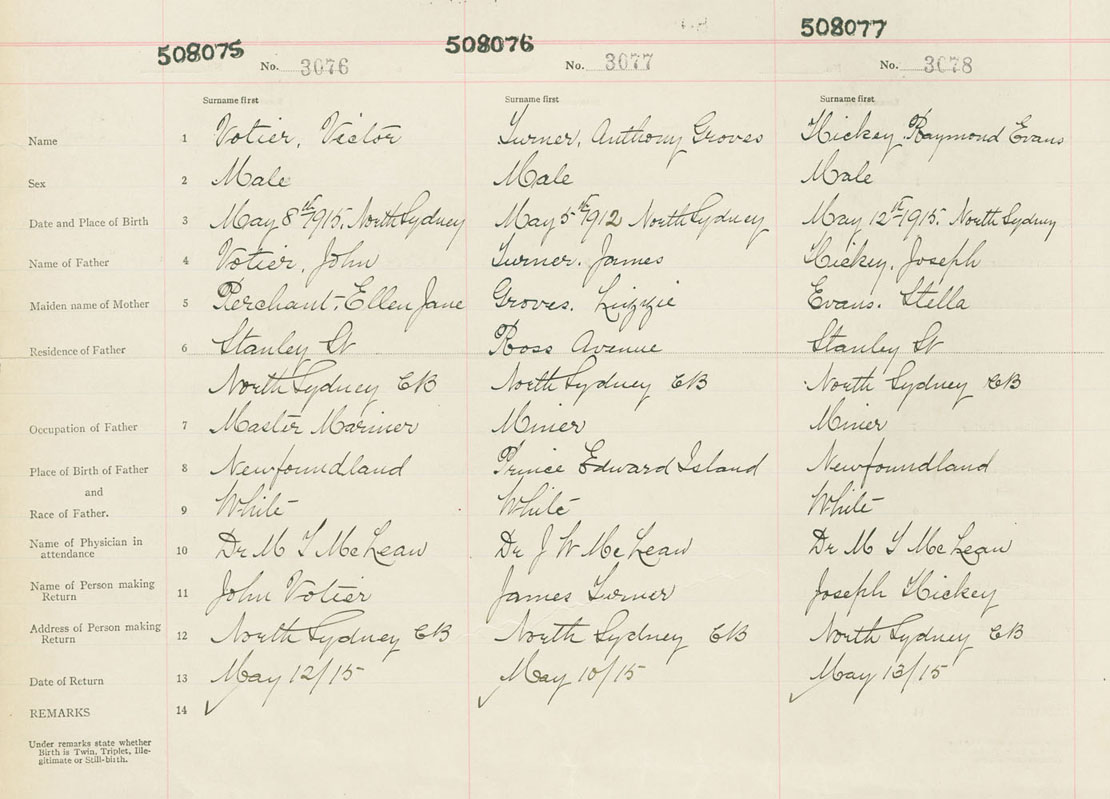 508075 508076 508077
No. 3076 No. 3077 No. 3078
Surname first Surname first Surname first
Name 1 Votier, Victor Turner, Anthony Groves Hickey, Raymond Evans
Sex 2 Male Male Male
Date and Place of Birth 3 May 8th 1915. North Sydney May 5th 1912 North Sydney May 12th 1915. North Sydney
Name of Father 4 Votier, John Turner. James Hickey. Joseph
Maiden name of Mother 5 Perchant-Ellen Jane Groves. Lizzie Evans. Stella
Residence of Father 6 Stanley St Ross Avenue Stanley St
North Sydney CB North Sydney CB North Sydney CB
Occupation of Father 7 Master Mariner Miner Miner
Place of Birth of Father 8 Newfoundland Prince Edward Island Newfoundland
and
Race of Father. 9 White White White
Name of Physician in
attendance 10 Dr M T McLean Dr J W McLean Dr M T McLean
Name of Person making
Return 11 John Votier James Turner Joseph Hickey
Address of Person making
Return 12 North Sydney CB North Sydney CB North Sydney CB
Date of Return 13 May 12/15 May 10/15 May 13/15
REMARKS 14
Under remarks state whether
Birth is Twin, Triplet, Ille-
gitimate or Still-birth.